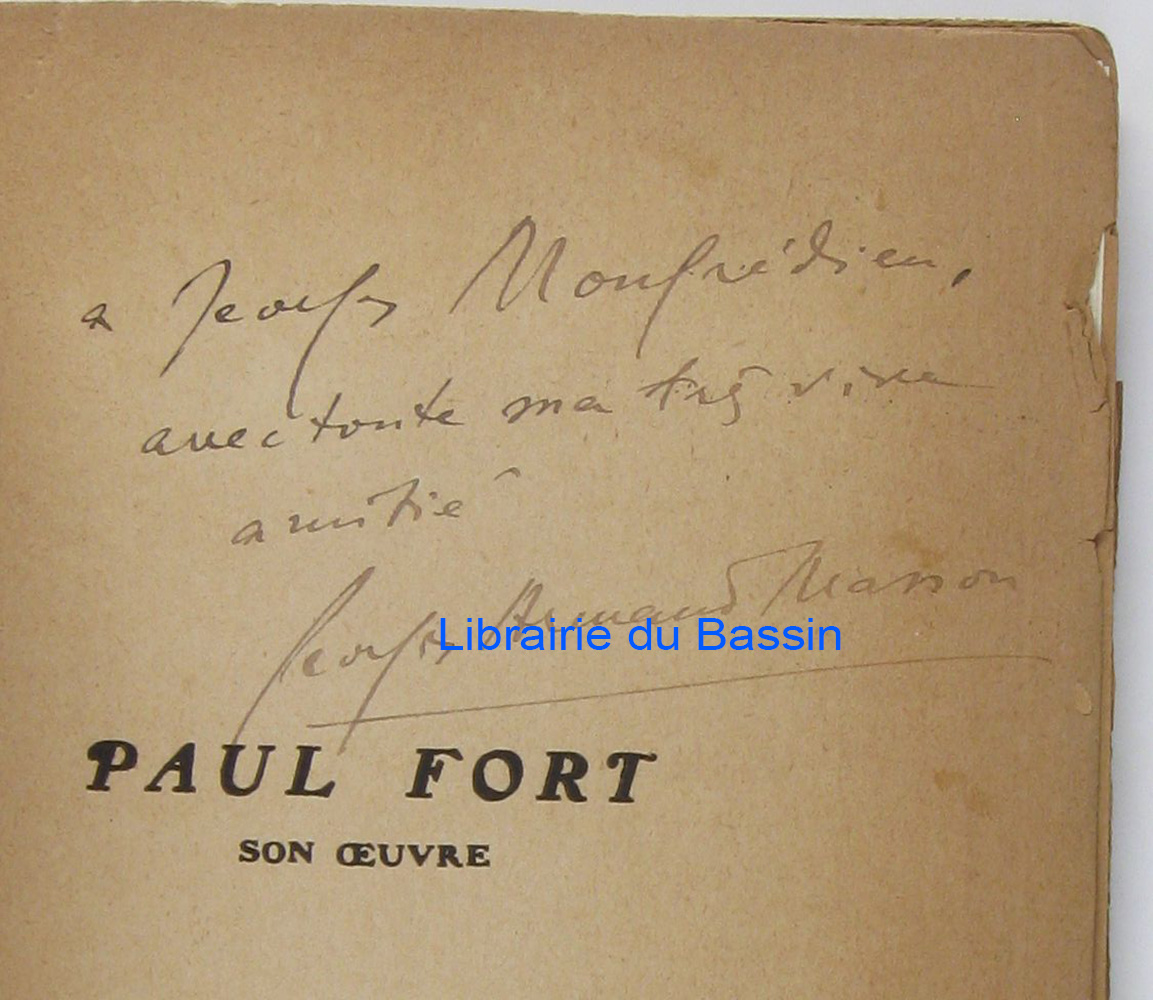 a Georges Monfrédien,
avec toute ma très vive
amitié
Georges Armand Masson
Librairie du Bassin
PAUL FORT
SON ŒUVRE